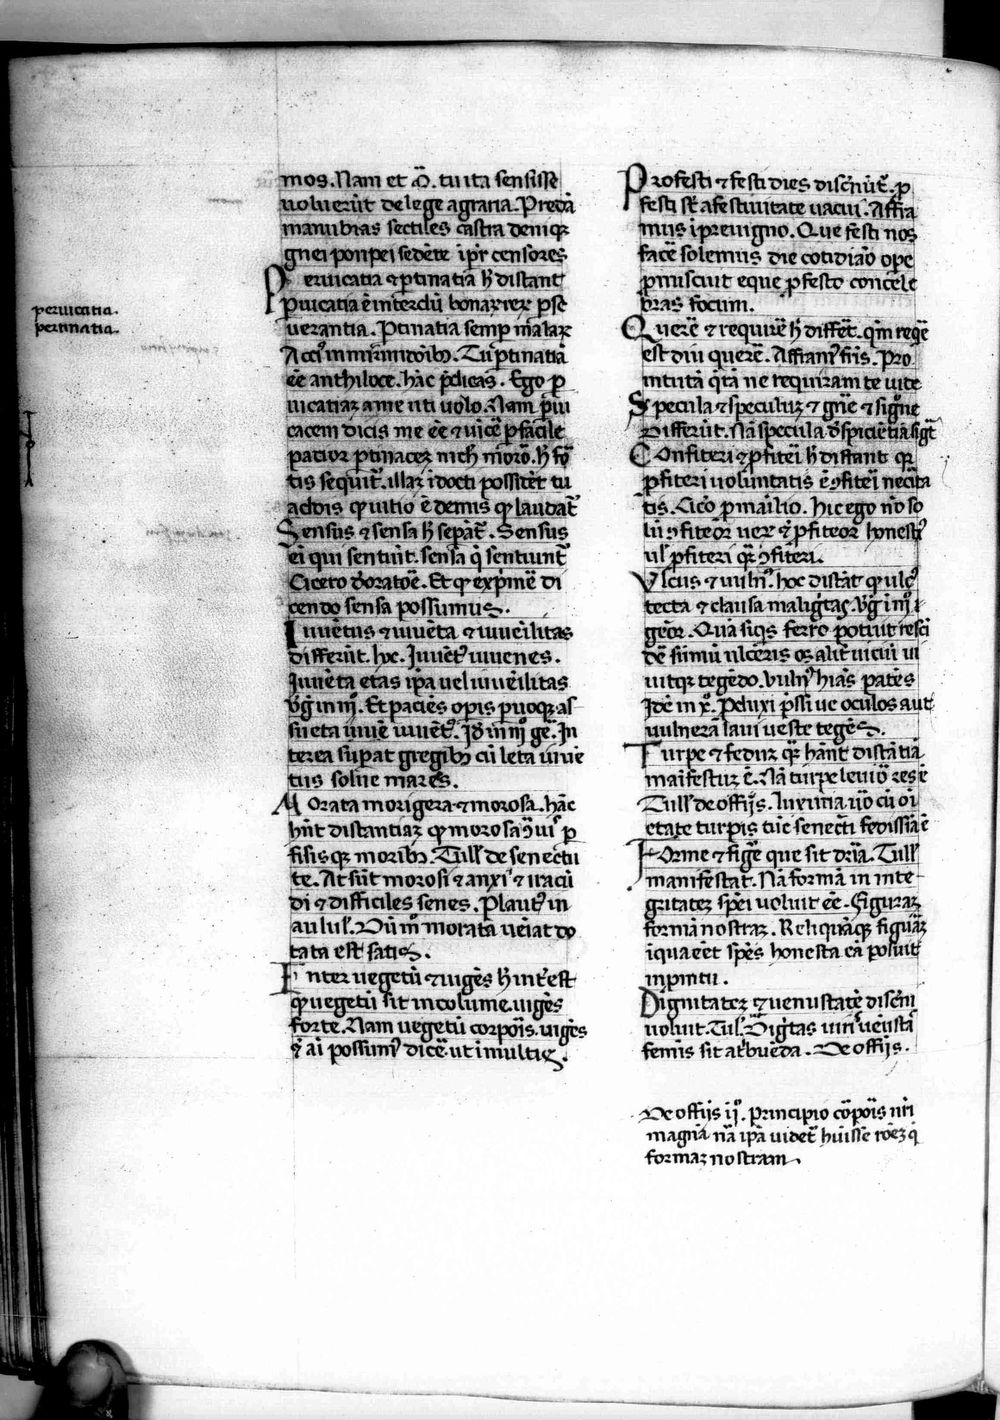 mos. Nam et Q̄. tu ita sensisse
voluerūt de lege agraria. Predā
manubias sectiles castra deniqꝫ
gnei ponpei sedēte ip̄r censores
Pervicatia ⁊ ptinatia h̄ distant
Pvicatia ē interdū bonaꝝ reꝝ pse
verantia. Ptinatia semp malaꝝ
Acci⁹ in mirmidoībꝫ. Tu ptinatiā
eē anthiloce. hāc p̄dicas. Ego p
vicatiaꝫ a me uti volo. Nam pvi
cacem dicis me eē ⁊ vīcē pfacile
patior ptinaceꝫ
tis sequit̄. illaꝫ īdocti possidēt tu
addis qͥ vitio ē demis qͥ laudat̄
Sensus ⁊ sensa h̄ sepāt̄. Sensus
ei qui sentiūt. sensa q̄ sentiunt̄
Cicero d̄oratoē. Et qͥ exp̄mē di
cendo sensa possumus.
Iuvētus ⁊ iuvēta ⁊ iuvēilitas
differūt. hoc. Iuvēt⁹ iuvenes.
Iuvēta etas ip̄a vel iuvēilitas
v̄g in iiij. Et paciēs opis pvoqꝫ as
sueta iuvē iuvēt⁹. Id in iij gē. In
terea supat gregibꝫ cū leta iuvē
tus solve mares.
Morata morigera ⁊ morosa. hāc
hn̄t distantiaꝫ qͥ morosa ꝯvis p
fisisqꝫ moribꝫ. Tull̄ de senectu
te. At sūt morosi ⁊ anxi⁹ ⁊ iracū
di ⁊ difficiles senes. Plaut⁹ in
aulul̄. Dū m° morata vēiat do
tata est satis.
Inter vegetū ⁊ vigēs h̄ int̄est
qͥ vegetū sit incolume. vigēs
forte. Nam vegetū corpoīs. vigēs
⁊ aī possum⁹ dicē. ut ī multis.
pervicatia.
pertinatia.
Profesti ⁊ festi dies disc̄nūt̄. p
festi st̄ a festivitate vacui. Affra
nius ī previgno. Que festi nos
facē solemus die cotidiāo ope
pmiscuit eque pfesto concele
bras focum.
Querē ⁊ requirē h̄ differt̄. qm̄ reqē
est diu querē. Affrani⁹ frīs. Pro
intutā q̄tā ne requiram te vite
Specula ⁊ speculuꝫ ⁊ gn̄e ⁊ signe
Differūt. Nā specula d̄spiciētiā siḡt
Confiteri ⁊ pfiteī h̄ distant qꝫ
pfiteri voluntatis ē ꝯfiteī necīta
tis. Cic̄o p manilio. hic ego nō so
lū ꝯfiteor veꝝ ⁊ pfiteor honest⁹
ul̄ pfiteri qꝫ ꝯfiteri.
Ulcus ⁊ vuln⁹. hoc distāt qͥ ulc⁹
tecta ⁊ clausa maliḡtas. v̄g in iij
geōr. Quā siqͥs ferro potuit resci
dē sūmū ulcēris os alit̄ viciū vi
vitqꝫ tegēdo. vuln⁹ hiās patēs
Idē in x°. Pcluxi pssi ve oculos aut
vulnerā lavi veste tegēs.
Turpe ⁊ feduꝫ qꝫ hānt distātiā
maīfestuꝫ ē. Nā turpe leviō res ē
Tull̄ de offijs. luxuria v̄o cū oī
etate turpis tūc senect̄i fedissiā ē
Forme ⁊ fiḡe que sit dr̄ia. Tull̄
manifestat. Nā formā in inte
gritateꝫ sp̄ei voluit eē. figuraꝫ
formā nostraꝫ. Reliquāqꝫ figurāꝫ
ī qua eēt sp̄es honesta eā posuit
in pmtu.
Dignitateꝫ ⁊ venustatē disc̄ni
voluit. Tul̄. Diḡtas viri⁹ vēustā
femīs sit at̄bueda. De offijs.
De offijs ij°. Principio cōpoīs nr̄i
magnā nā ip̄a videt̄ huisse rōeꝫ q̄
formaꝫ nostram